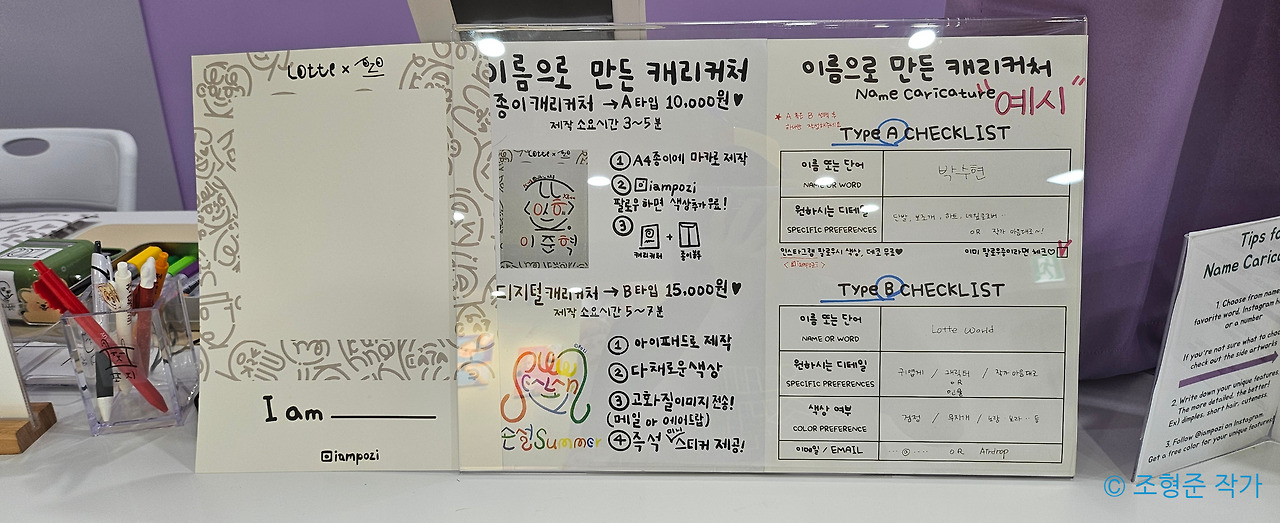 Lotte x
I am
iampozi
이름으로 만든 캐리커처
종이캐리커처 → A타입 10,000원♥
제작 소요시간 3~5분
Lotte x
이준혁
① A4종이에 마카로 제작
② iampozi
팔로우하면 색상추가 무료!
③
캐리커처 + 종이봉투
디지털캐리커처 → B타입 15,000원♥
제작 소요시간 5~7분
손설Summer
① 아이패드로 제작
② 다채로운색상
③ 고화질이미지 전송!
(메일 or 에어드랍)
④ 즉석 미니 스티커 제공!
이름으로 만든 캐리커처
Name Caricature "예시"
★ A 혹은 B 선택 후
하나만 작성해주세요
Type A CHECKLIST
이름 또는 단어
NAME OR WORD
박수현
원하시는 디테일
SPECIFIC PREFERENCES
단발, 보조개, 하트,
OR 작가 마음대로~!
인스타그램 팔로우시 색상, 데코 무료♥
이미 팔로우중이라면 체크♡
Type B CHECKLIST
이름 또는 단어
NAME OR WORD
Lotte World
원하시는 디테일
SPECIFIC PREFERENCES
귀엽게 / 캐릭터 / 작가 마음대로
OR
인물
색상 여부
COLOR PREFERENCE
검정 / 무지개 / 노랑 보라 … 등
이메일 / EMAIL
OR Airdrop
Tips fo
Name Caric
1. Choose from name
favorite word, Instagram h
or a number
If you're not sure what to cho
check out the side artworks
2. Write down your unique features.
The more detailed, the better!
Ex) dimples, short hair, cuteness.
3. Follow @iampozi on Instagram,
Get a free color for your unique features!
© 조형준 작가